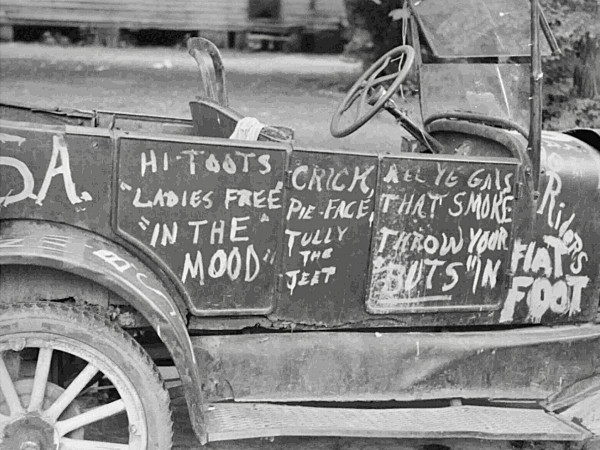 SA.
HI-TOOTS
"LADIES FREE"
"IN THE
MOOD"
CRICK,
PIE-FACE,
TULLY
THE
JEET
ALL YE GALS
THAT SMOKE
THROW YOUR
"BUTS" IN
Riders
FLAT
FOOT